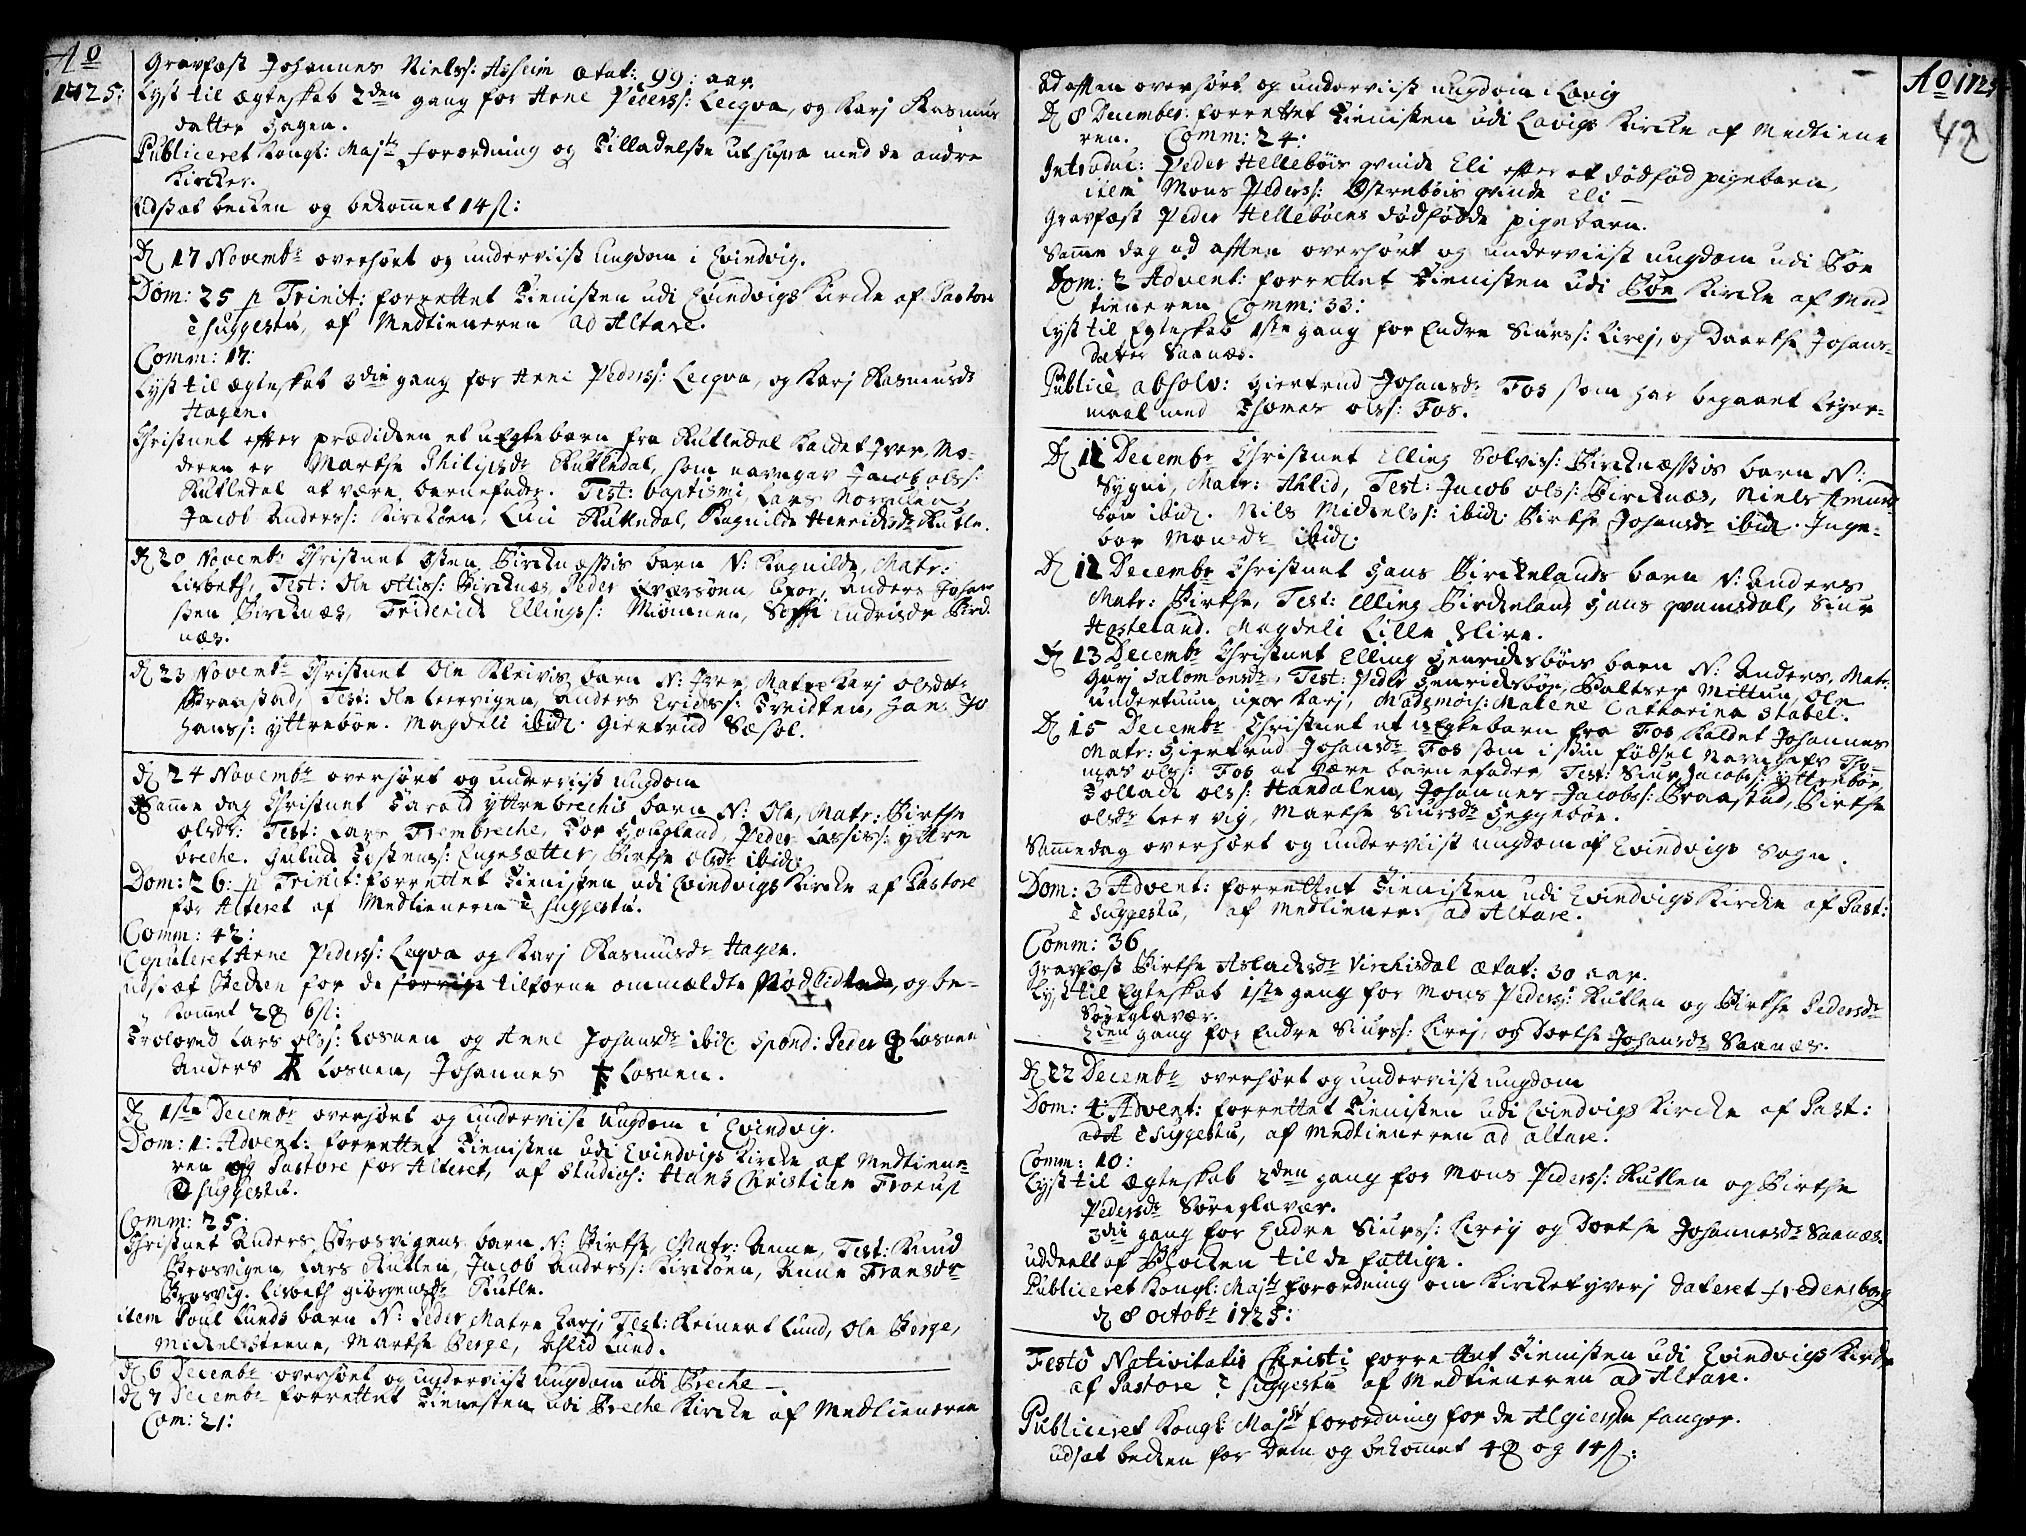 Ao
1725:
Gravfæst Johannes Nielss: Asheim ætat: 99: aar.
Lyst til ægteskab 2den gang for Arne Pederss: Lecqva, og Karj Rasmus
datter Hagen.
Publiceret Kongl: Majts forordning og Tilladelse ut supra med de andre
Kircker.
Udsat becken og bekomet 14 ß:
D 17 Novembr overhört og underviist ungdom i Evindvig.
Dom: 25 p Trinit: forrettet Tienisten udi Evindvigs Kircke af Pastore
è suggestu, af Medtieneren ad Altare.
Comm: 17:
Lyst til ægteskab 3die gang for Arne Pederss: Lecqva, og Karj Rasmusdr
Hagen.
Christnet efter prædicken et uEgte barn fra Rutledal kaldet Iver, Mo-
deren er Marthe Philipsdr Rutledal, som navngav Jacob olss:
Rutledal at være barnefader. Test: baptismi, Lars
Jacob Anderss: Kircköen, Luci Rutledal, Ragnilde Henricksdr Rutle.
D 20 Novembr Christnet Osten Bircknæssis barn N: Ragnilde, Matr:
Lisbeth, Test: Ole Bircknæs, Peder Anders Johan
sen Bircknæs, Friderick Ellingss: Endrisdr Birck
næs.
D 23 Novembr Christnet Ole Kleivis barn N: Iver, Matre Karj olsdr
Braastad, Test: Ole Leervigen, Anders Ericks: Hans Jo
hanss: yttrebön. Magdeli ibid. Giertrud
D 24 Novembr overhört og underviist ungdom
Same dag Christnet Harald yttrebrechis barn N: Ole, Matr: Birthe
olsdr: Test: Lars Frembreche, Tor Hougland, Peder Lassess: yttre
breche. Gulud Engesætter, Birthe olsdr ibid.
Dom: 26: p Trinit: forrettet Tienisten udi Evindvigs Kircke af Pastore
for Alteret af Medtieneren è suggestu.
Comm: 42:
Copuleret Arne Pederss: Leqva og Karj Rasmusdr Hagen.
udsat Becken for de forrige tilforne ommældte Nødlidende, og be-
komet 2 6 ß:
Troloved Lars olss: Losnen og Anne Johansdr ibid. Spond: Peder Losnen
Anders Losnen, Johannes Losnen.
D 1ste Decembr overhört og underviist ungdom i Evindvig.
Dom: 1: Advent: forrettet Tienisten udi Evindvigs Kircke af Medtiene-
ren og Pastore for Alteret, af Studios: Hans Christian Trorup
è suggestu.
Comm: 25:
Christnet Anders Brosvigens barn N: Birthe, Matr: Anne, Test: Knud
Brosvigen, Lars Rutlen, Jacob Anderss: Kircköen, Anne Fransdr
Brosvig. Lisbeth Giörgensdr Rutle.
item Poul Lunds barn N: Peder Matre Karj, Test: Reinert Lund, Ole Berge,
Mickel Steene, Marthe Berge, Aslid Lund.
D 6 Decembr overhört og underviist ungdom udi Breche.
D 7 Decembr forrettet Tienesten udi Breche Kircke af Medtieneren
Com: 21:
Ao 1725
42
Ad aften overhört og underviist ungdom i Lavig
D 8 December: forrettet Tienisten udi Lavigs Kircke af Medtiene
ren. Comm: 24:
Introduc: Peder Hellebøis qvinde Eli efter et dødfød pigebarn,
item Mons Pederss: Østrebøis qvinde Eli
Gravfæst Peder Hellebøens dødfødde pigebarn.
Same dag ad aften overhört og underviist ungdom udi Bøe
Dom: 2 Advent: forrettet Tienisten udi Bøe Kircke af Med
tieneren Comm: 33:
Lyst til Egteskab 1ste gang for Endre Siurss: Lirej, og Daarthe Johans-
datter Saanæs.
Publicè absolv: Giertrud Johansdr Fos som har begaaet Leyer-
maal med Thomas olss: Fos.
D 12 Decembr Christnet Elling Solviss: Bircknæssis barn N:
Sygni, Matr: Ahlid, Test: Jacob olss: Bircknæs, Niels Amund
sön ibid. Nils Mickelss: ibid. Birthe Johansdr ibid. Inge-
bor Monsdr ibid.
D 12 Decembr Christnet Hans Birckelands barn N: Anders
Matr: Birthe, Test: Elling Birckeland, Hans qvamsdal, Siur
Hosteland. Magdeli Lille Slire.
D 13 Decembr Christnet Elling Henricksbøis barn N: Anders, Matr:
Guri Salomonsdr, Test: Peder Henricksbøe, Baltser Mittun, Ole
Undertuun, Karj, Mademois: Malene Catharina Stabel:
D 15 Decembr Christnet et uEgte barn fra Fos kaldet Johannes
Matr: Giertrud Johansdr Fos som i sin födsel Navngafv Tho-
mas olss: Fos at være barnefader, Test: Siur Jacobss: yttrebøe,
Tollack olss: Handalen, Johannes Jacobss: Braastad, Birthe
olsdr Leervig, Marthe Siursdr Heggebøe.
Same dag overhört og underviist ungdom af Evindvigs Sogn.
Dom: 3 Advent: forrettet Tienisten udi Evindvigs Kircke af Past:
è suggestu, af Medtiener: ad Altare.
Comm: 36
Gravfæst Birthe Aslacksdr Virchisdal ætat: 30 aar.
Lyst til Egteskab 1ste gang for Mons Pederss: Rutlen og Birthe Pedersdr
Søreglavær.
2den gang for Endre Siurss: Lirej, og Dorthe Johansdr Saanæs.
D 22 Decembr overhört og underviist ungdom
Dom: 4 Advent: forrettet Tienisten udi Evindvigs Kircke af Past:
ad A è suggestu, af Medtieneren ad altare.
Comm: 10:
Lyst til Ægteskab 2den gang for Mons Pederss: Rutlen og Birthe
Pedersdr Søreglavær.
3die gang for Endre Siurss: Lirej og Dorthe Johannesdr Saanæs.
uddeelt af Blocken til de fattige.
Publiceret Kongl: Majts forordning om Kircketyverj dateret Fredensborg
d 8 octobr 1725:
Festo Nativitatis Christi forrettet Tienisten udi Evindvigs Kircke
af Pastore è suggestu af Medtieneren ad Altare.
Publiceret Kongl: Majts forordning for de Algierske fanger.
udsat becken for dem og bekomet 4 og 14 ß: